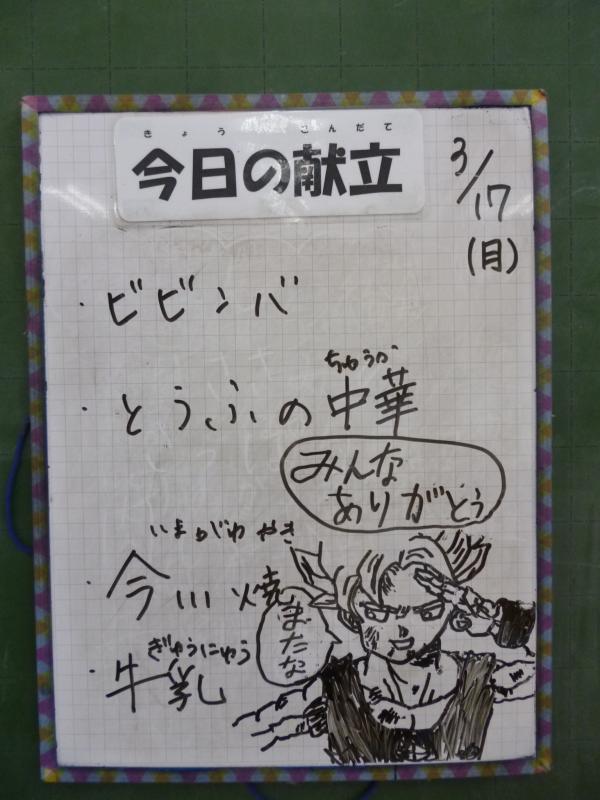 きょう こんだて
今日の献立
3/17
(月)
・ビビンバ
ちゅうか
・とうふの中華
みんな
ありがとう
いまがわ やき
・今川焼
またな
ぎゅうにゅう
・牛乳